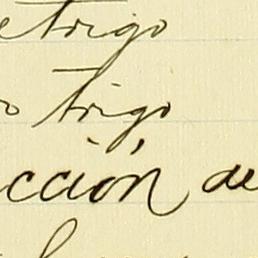 etrigo
o trigo
cción de